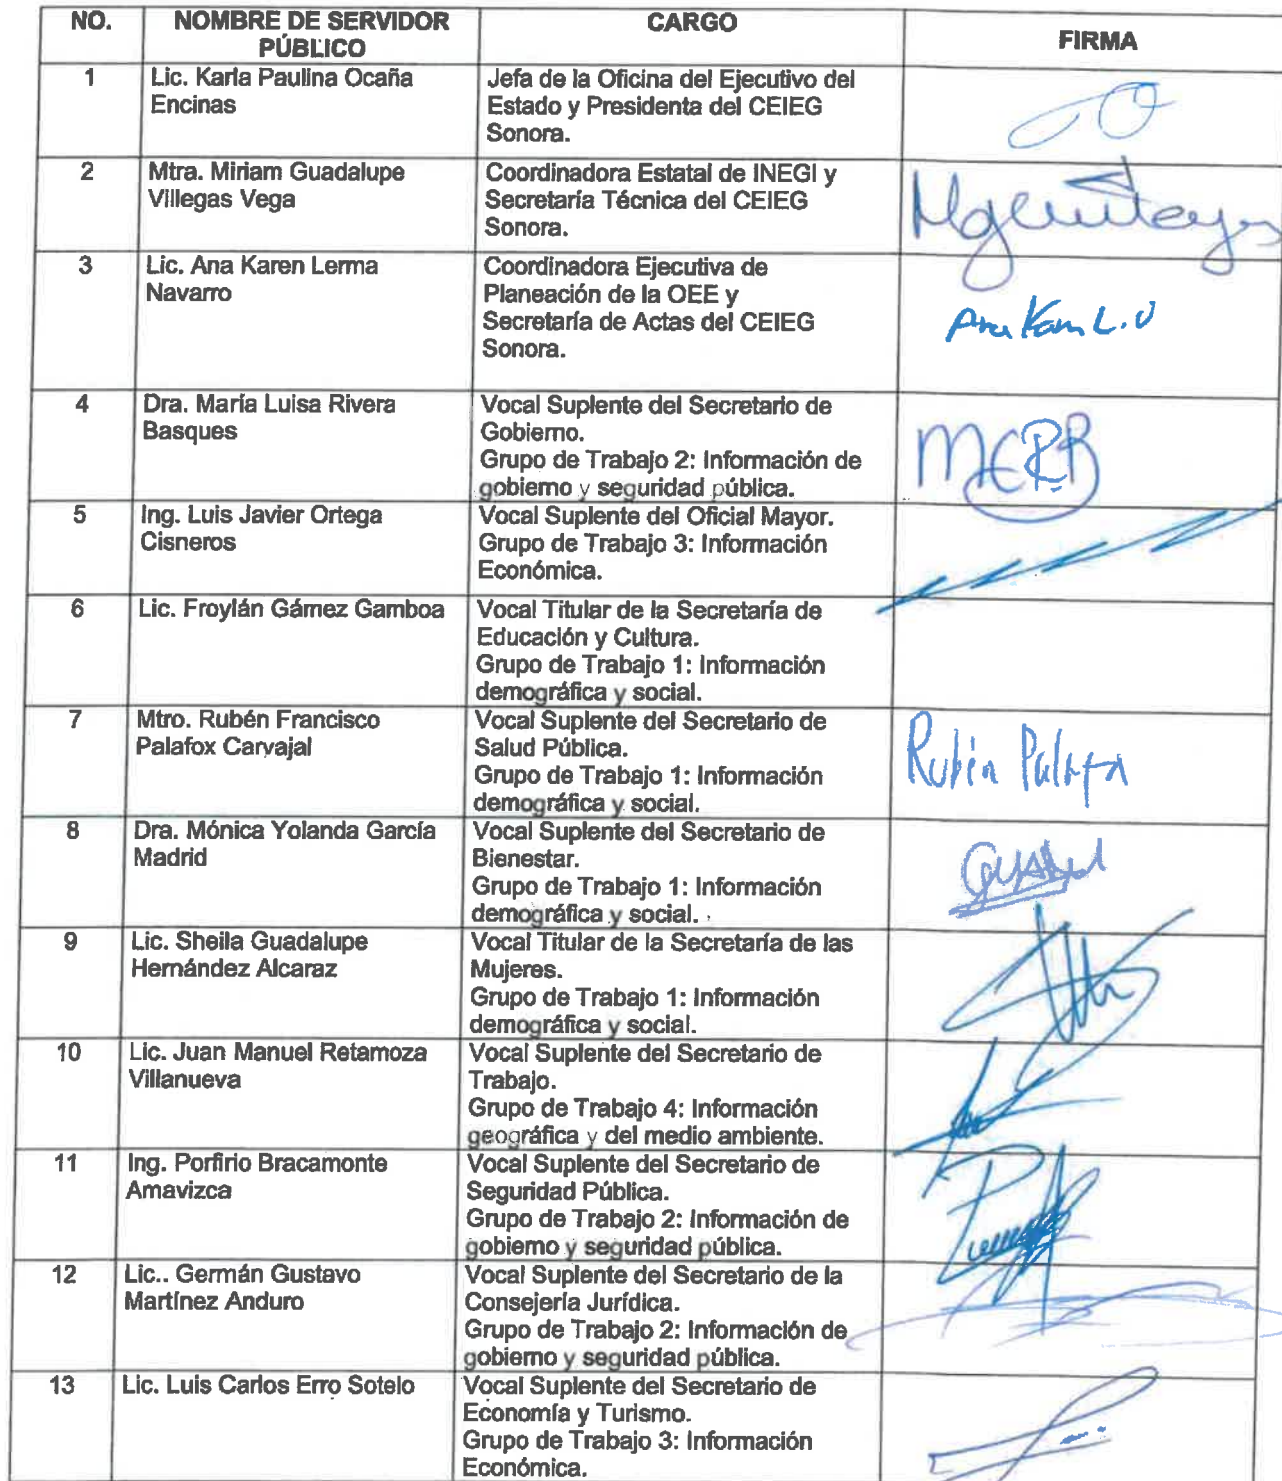 NO. NOMBRE DE SERVIDOR PÚBLICO CARGO FIRMA
1 Lic. Karla Paulina Ocaña Encinas
Jefa de la Oficina del Ejecutivo del
Estado y Presidenta del CEIEG
Sonora.
2 Mtra. Miriam Guadalupe
Villegas Vega
Coordinadora Estatal de INEGI y
Secretaría Técnica del CEIEG
Sonora.
3 Lic. Ana Karen Lerma
Navarro
Coordinadora Ejecutiva de
Planeación de la OEE y
Secretaría de Actas del CEIEG
Sonora.
Ana Karen L.N
4 Dra. María Luisa Rivera
Basques
Vocal Suplente del Secretario de
Gobierno.
Grupo de Trabajo 2: Información de
gobierno y seguridad pública.
5 Ing. Luis Javier Ortega
Cisneros
Vocal Suplente del Oficial Mayor.
Grupo de Trabajo 3: Información
Económica.
6 Lic. Froylán Gámez Gamboa
Vocal Titular de la Secretaría de
Educación y Cultura.
Grupo de Trabajo 1: Información
demográfica y social.
7 Mtro. Rubén Francisco
Palafox Carvajal
Vocal Suplente del Secretario de
Salud Pública.
Grupo de Trabajo 1: Información
demográfica y social.
Rubén Palafox
8 Dra. Mónica Yolanda García
Madrid
Vocal Suplente del Secretario de
Bienestar.
Grupo de Trabajo 1: Información
demográfica y social.
9 Lic. Sheila Guadalupe
Hernández Alcaraz
Vocal Titular de la Secretaría de las
Mujeres.
Grupo de Trabajo 1: Información
demográfica y social.
10 Lic. Juan Manuel Retamoza
Villanueva
Vocal Suplente del Secretario de
Trabajo.
Grupo de Trabajo 4: Información
geográfica y del medio ambiente.
11 Ing. Porfirio Bracamonte
Amavizca
Vocal Suplente del Secretario de
Seguridad Pública.
Grupo de Trabajo 2: Información de
gobierno y seguridad pública.
12 Lic.. Germán Gustavo
Martínez Anduro
Vocal Suplente del Secretario de la
Consejería Jurídica.
Grupo de Trabajo 2: Información de
gobierno y seguridad pública.
13 Lic. Luis Carlos Erro Sotelo
Vocal Suplente del Secretario de
Economía y Turismo.
Grupo de Trabajo 3: Información
Económica.